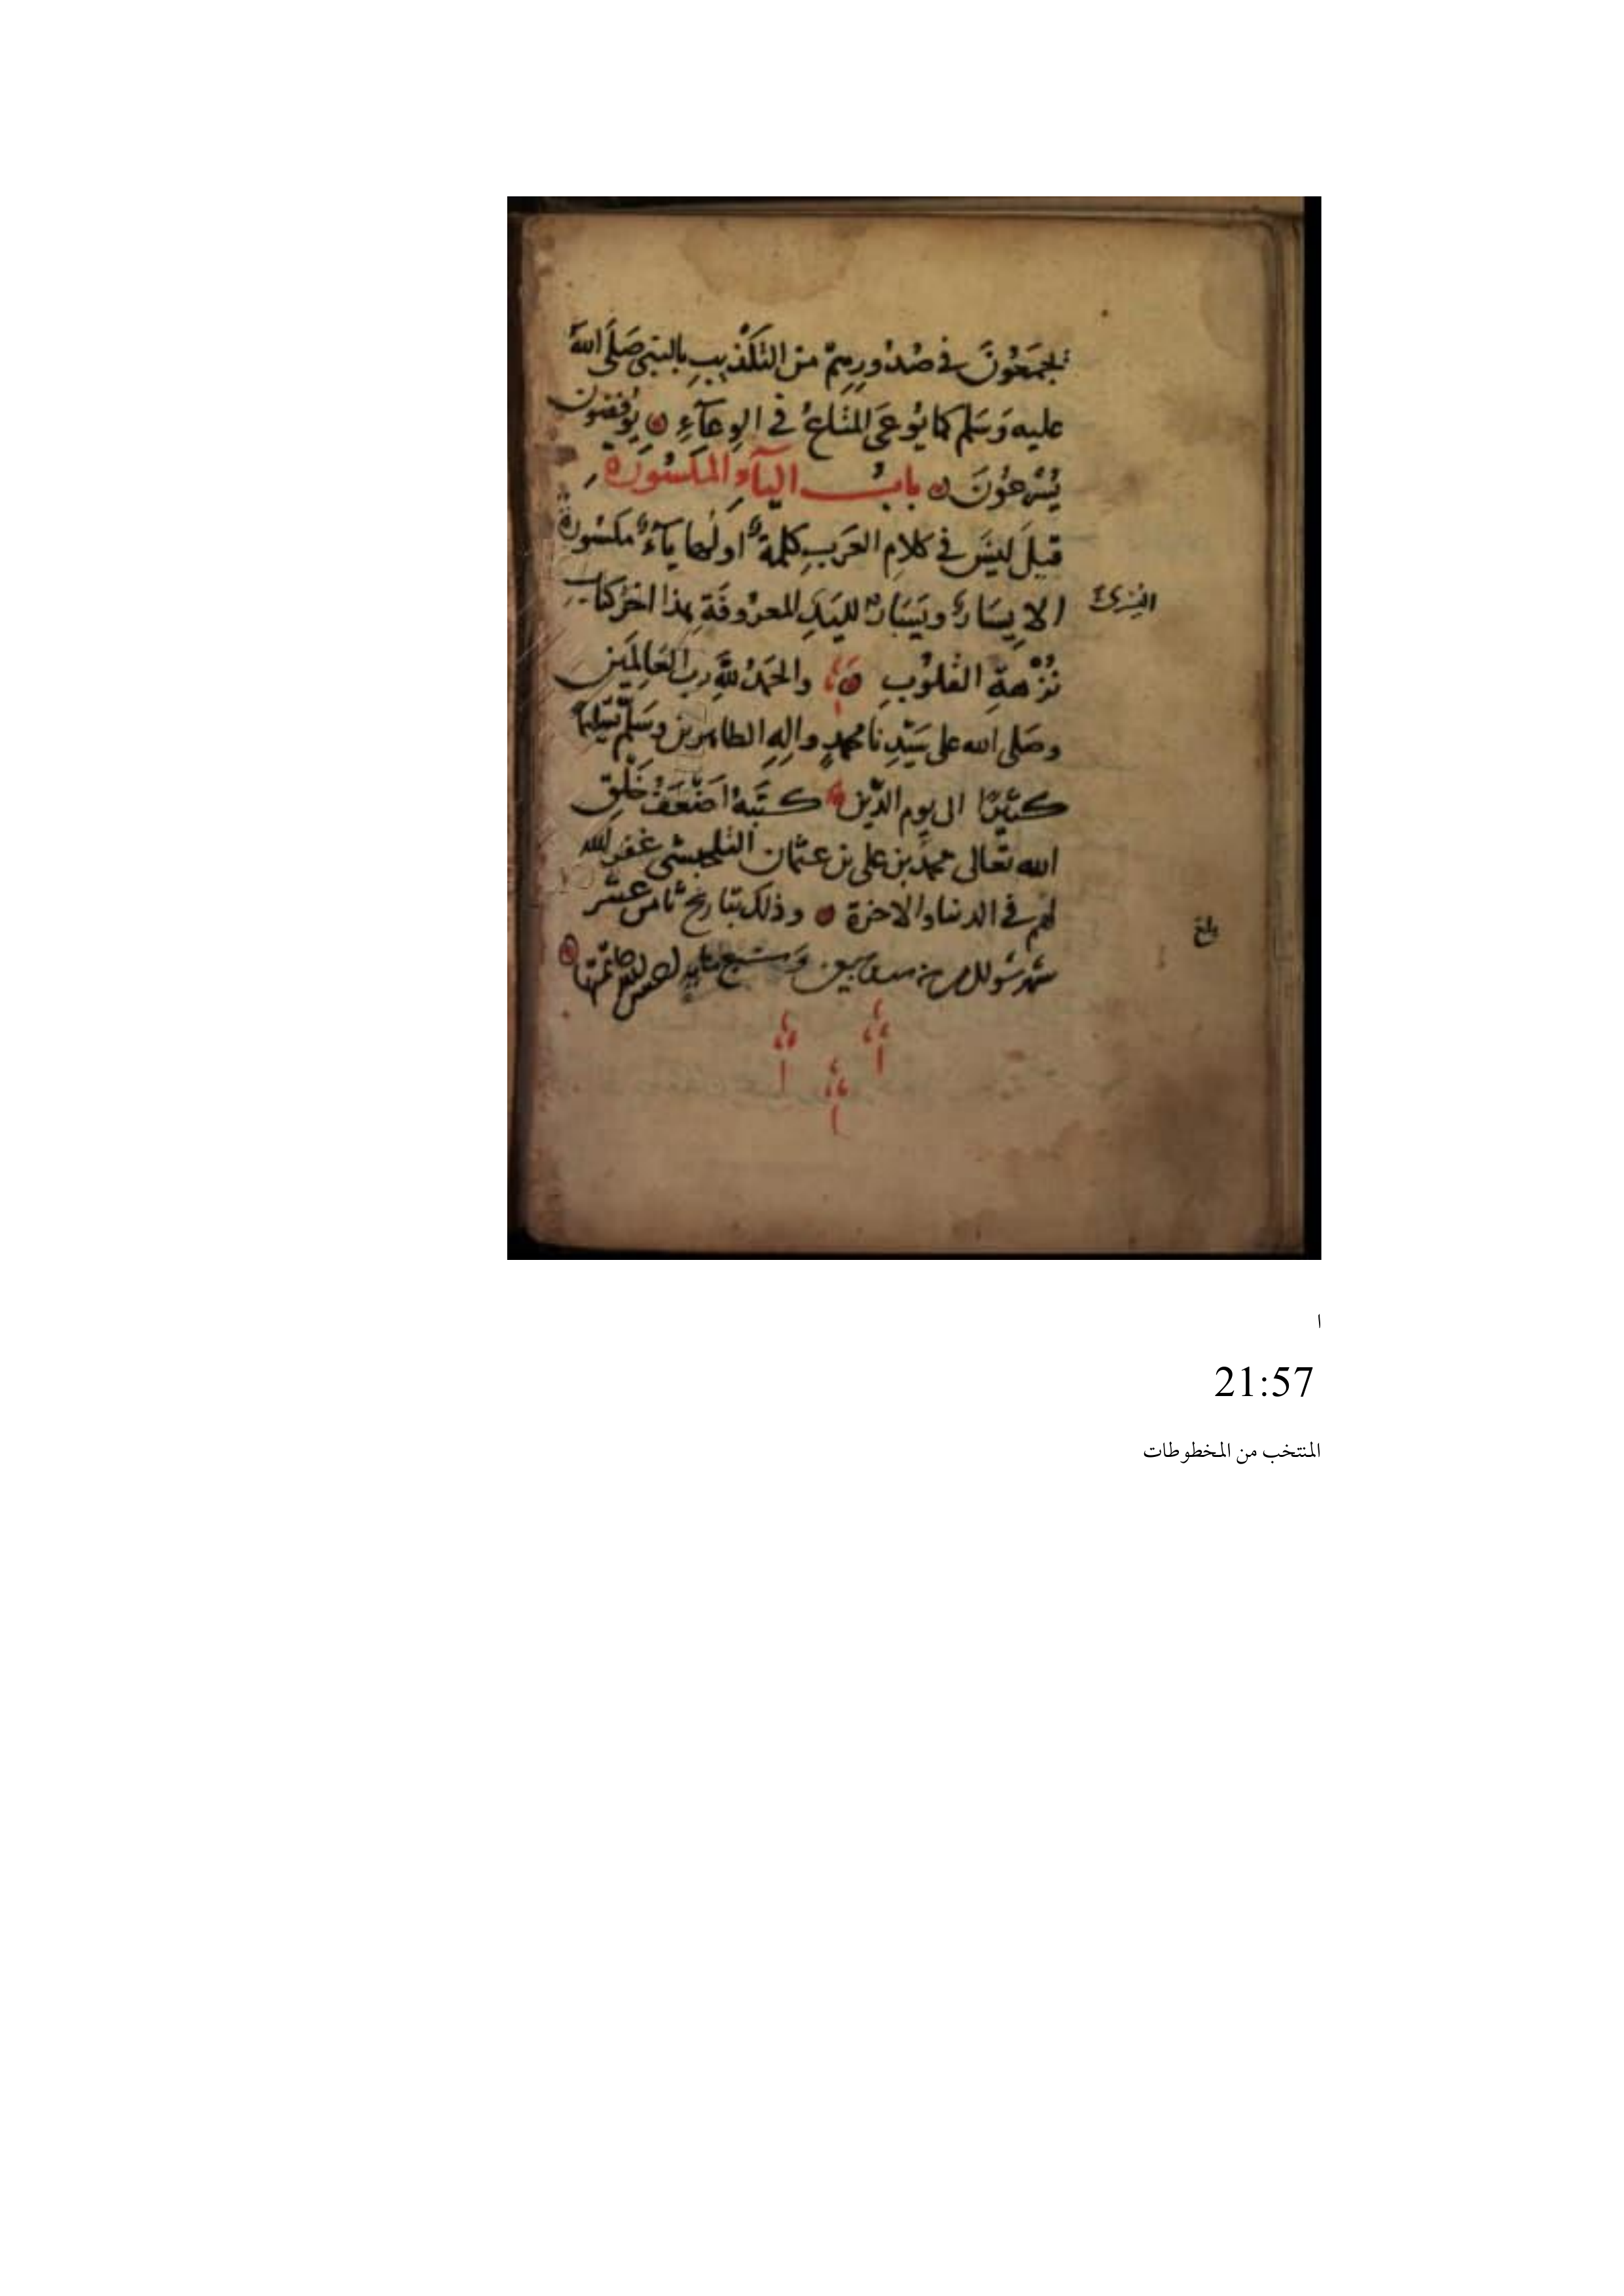 يجمَعُونَ في صُدُورِهِمْ من التكذيبِ بالنبي صَلى اللهُ
عليه وَسَلم كما يُوعَى المتَاعُ في الوِعَآءِ يُوفِضون
يُسْرِعُونَ بابُ اليآءِ المكسُورَةِ
قيلَ ليسَ في كلامِ العَرَبِ كلمةٌ اولُها يآءٌ مكسُورةٌ
الا يِسَارٌ ويَسَارٌ لليَدِ المعرُوفَةِ هذا اخرُ كتاب
اليُسْرىَ
نُزْهةِ القلُوبِ والحَمدُ للهِ ربِ العَالمَين
وصَلى الله على سَيّدِنا محمدٍ والِهِ الطاهرين وسَلّم تسليمًا
كثيرًا الى يوم الدّين كتَبَهُ اضْعَفُ خَلْقِ
الله تعالى محمد بن على بن عثمان غفر الله
لهم في الدنيا والاخرة وذلك بتاريخ ثامن عشر
بلغ
شهر شوال
ا
21:57
المنتخب من المخطوطات